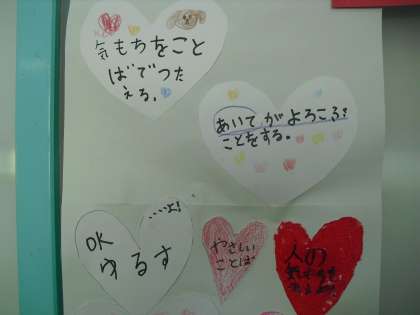 気もちをこと
ばでつた
える。
あいてがよろこぶ
ことをする。
……よ!
OK
ゆるす
やさしい
ことば
人の